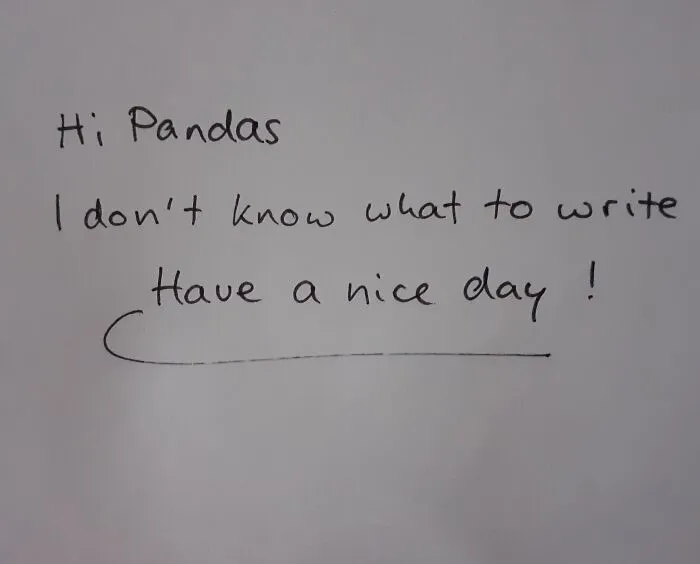 Hi Pandas
I don't know what to write
Have a nice day !